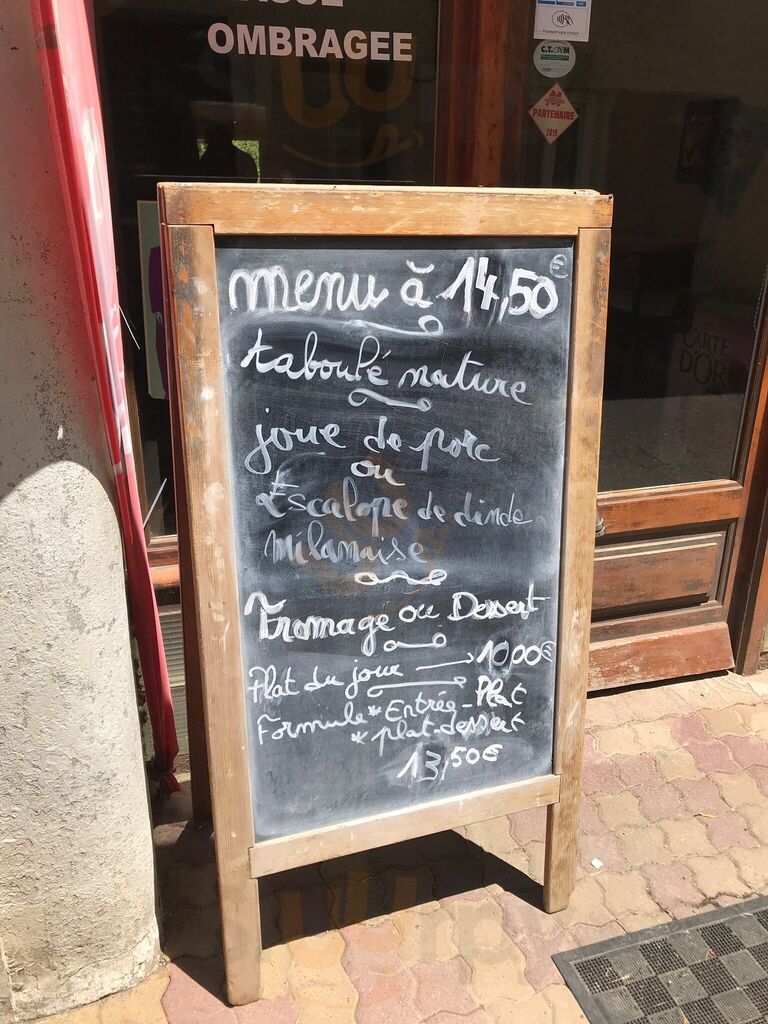 OMBRAGEE
C.T.CAM
PARTENAIRE
2019
menu à 14,50€
taboulé nature
joue de porc
ou
Escalope de dinde
milanaise
Fromage ou Dessert
Plat du jour → 10,00€
Formule * Entrée - Plat
* plat-dessert
13,50€
CARTE
D'OR